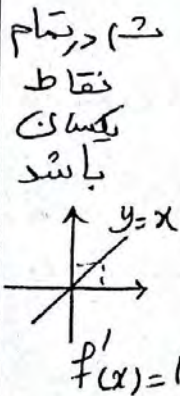 در تمام
نقاط
یکسان
باشد
y=x
f'(x)=1